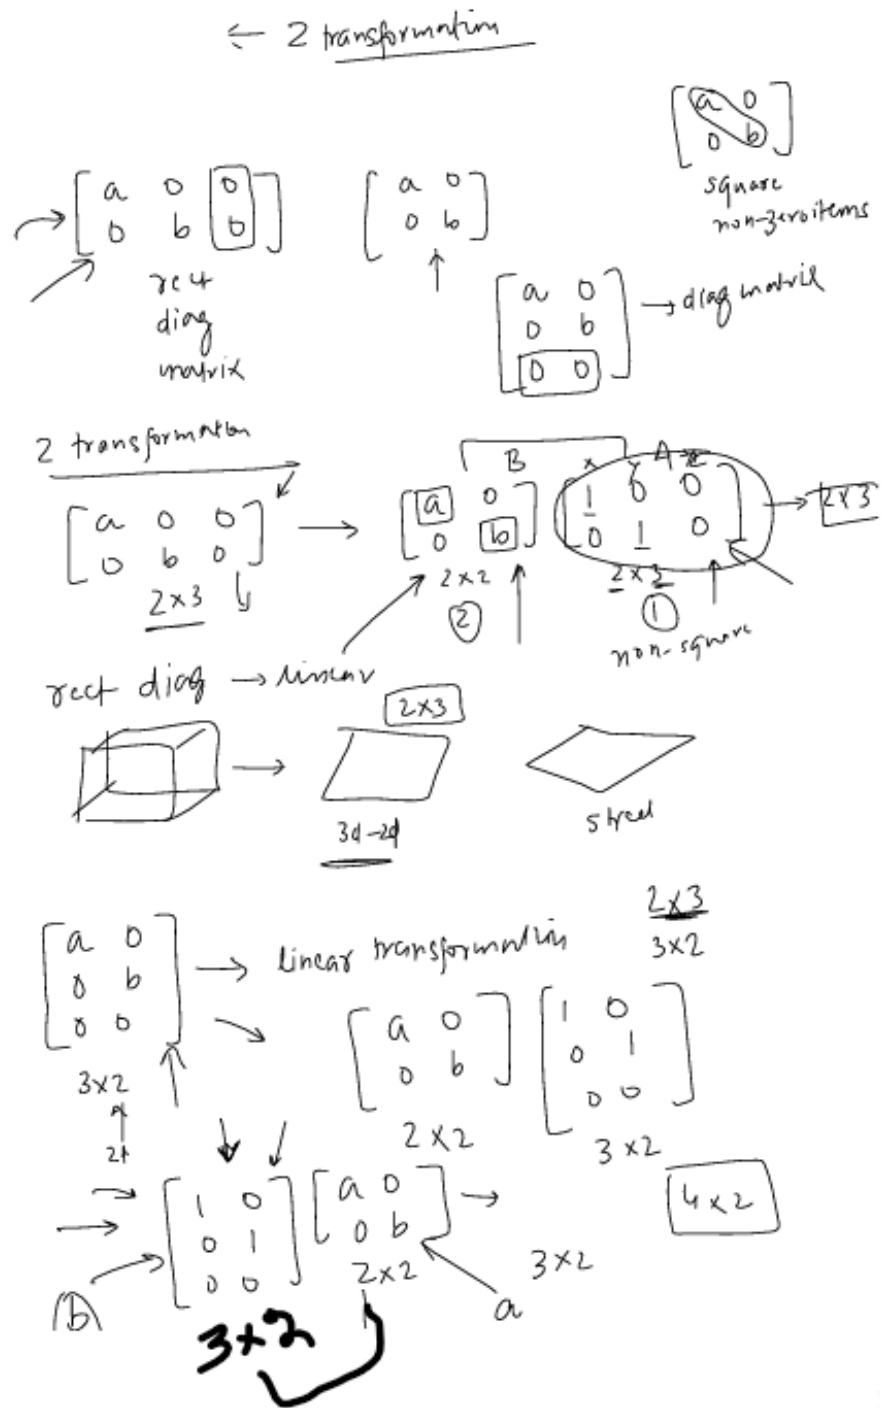 ← 2 transformation
[a 0
0 b]
square
non-zero items
[a 0 0
0 b 0]
rect
diag
matrix
[a 0
0 b]
[a 0
0 b
0 0] → diag matrix
2 transformation
[a 0 0
0 b 0]
2×3
→
B
[a 0
0 b]
2×2
2
x y A z
[1 0 0
0 1 0]
2×3
1
non-square
→ 2×3
rect diag → linear
→
2×3
3d-2d
[a 0
0 b
0 0]
3×2
→ linear transformation
2×3
3×2
[a 0
0 b]
2×2
[1 0
0 1
0 0]
3×2
[1 0
0 1
0 0]
3×2
[a 0
0 b]
2×2
→
3×2
4×2
b
a